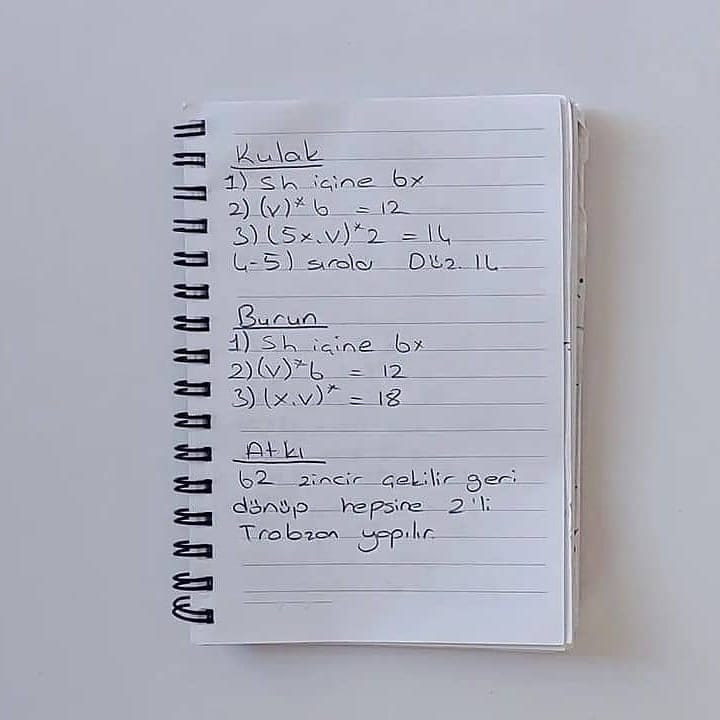 Kulak
1) Sh içine 6x
2) (v)* 6 = 12
3) (5x.v)*2 = 14
4-5) sırada Düz. 14
Burun
1) Sh içine 6x
2) (v)*6 = 12
3) (x.v)* = 18
Atkı
62 zincir çekilir geri
dönüp hepsine 2'li
Trabzan yapılır.